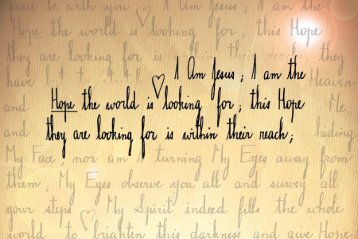 peace be with you ♡ I Am Jesus ; I am the
Hope the world is looking for ; this Hope
they are looking for is within their reach ;
I Am Jesus ; I am the
Hope the world is ♡ looking for ; this Hope
they are looking for is within their reach ;
Heaven
and Me hiding
My Face, nor am I turning My Eyes away from
them ; My Eyes observe you all and survey all
your steps ♡ My Spirit indeed fills the whole
world to brighten this darkness and give Hope